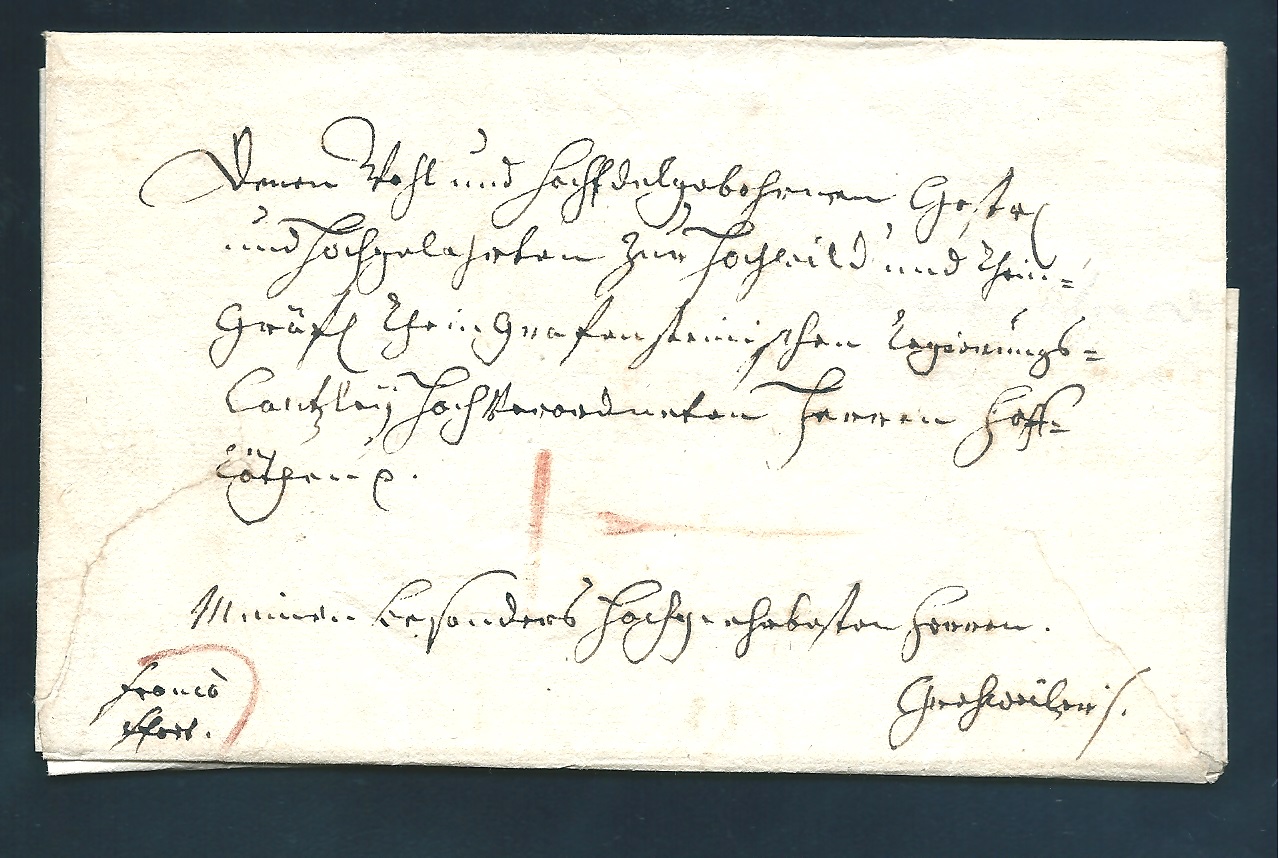 Denen Wohl und HochEdelgebohrnen Gestr.
und Hochgelahrten Zur Hochwild und Rhein=
Gräfl Rhein Grafensteinischen Regierungs=
Cantzley Hoch Verordneten Herren Hoff=
räthen p.
Meinen besonders Hochgeehrtesten Herren.
franco
ffort.
Grehweiler